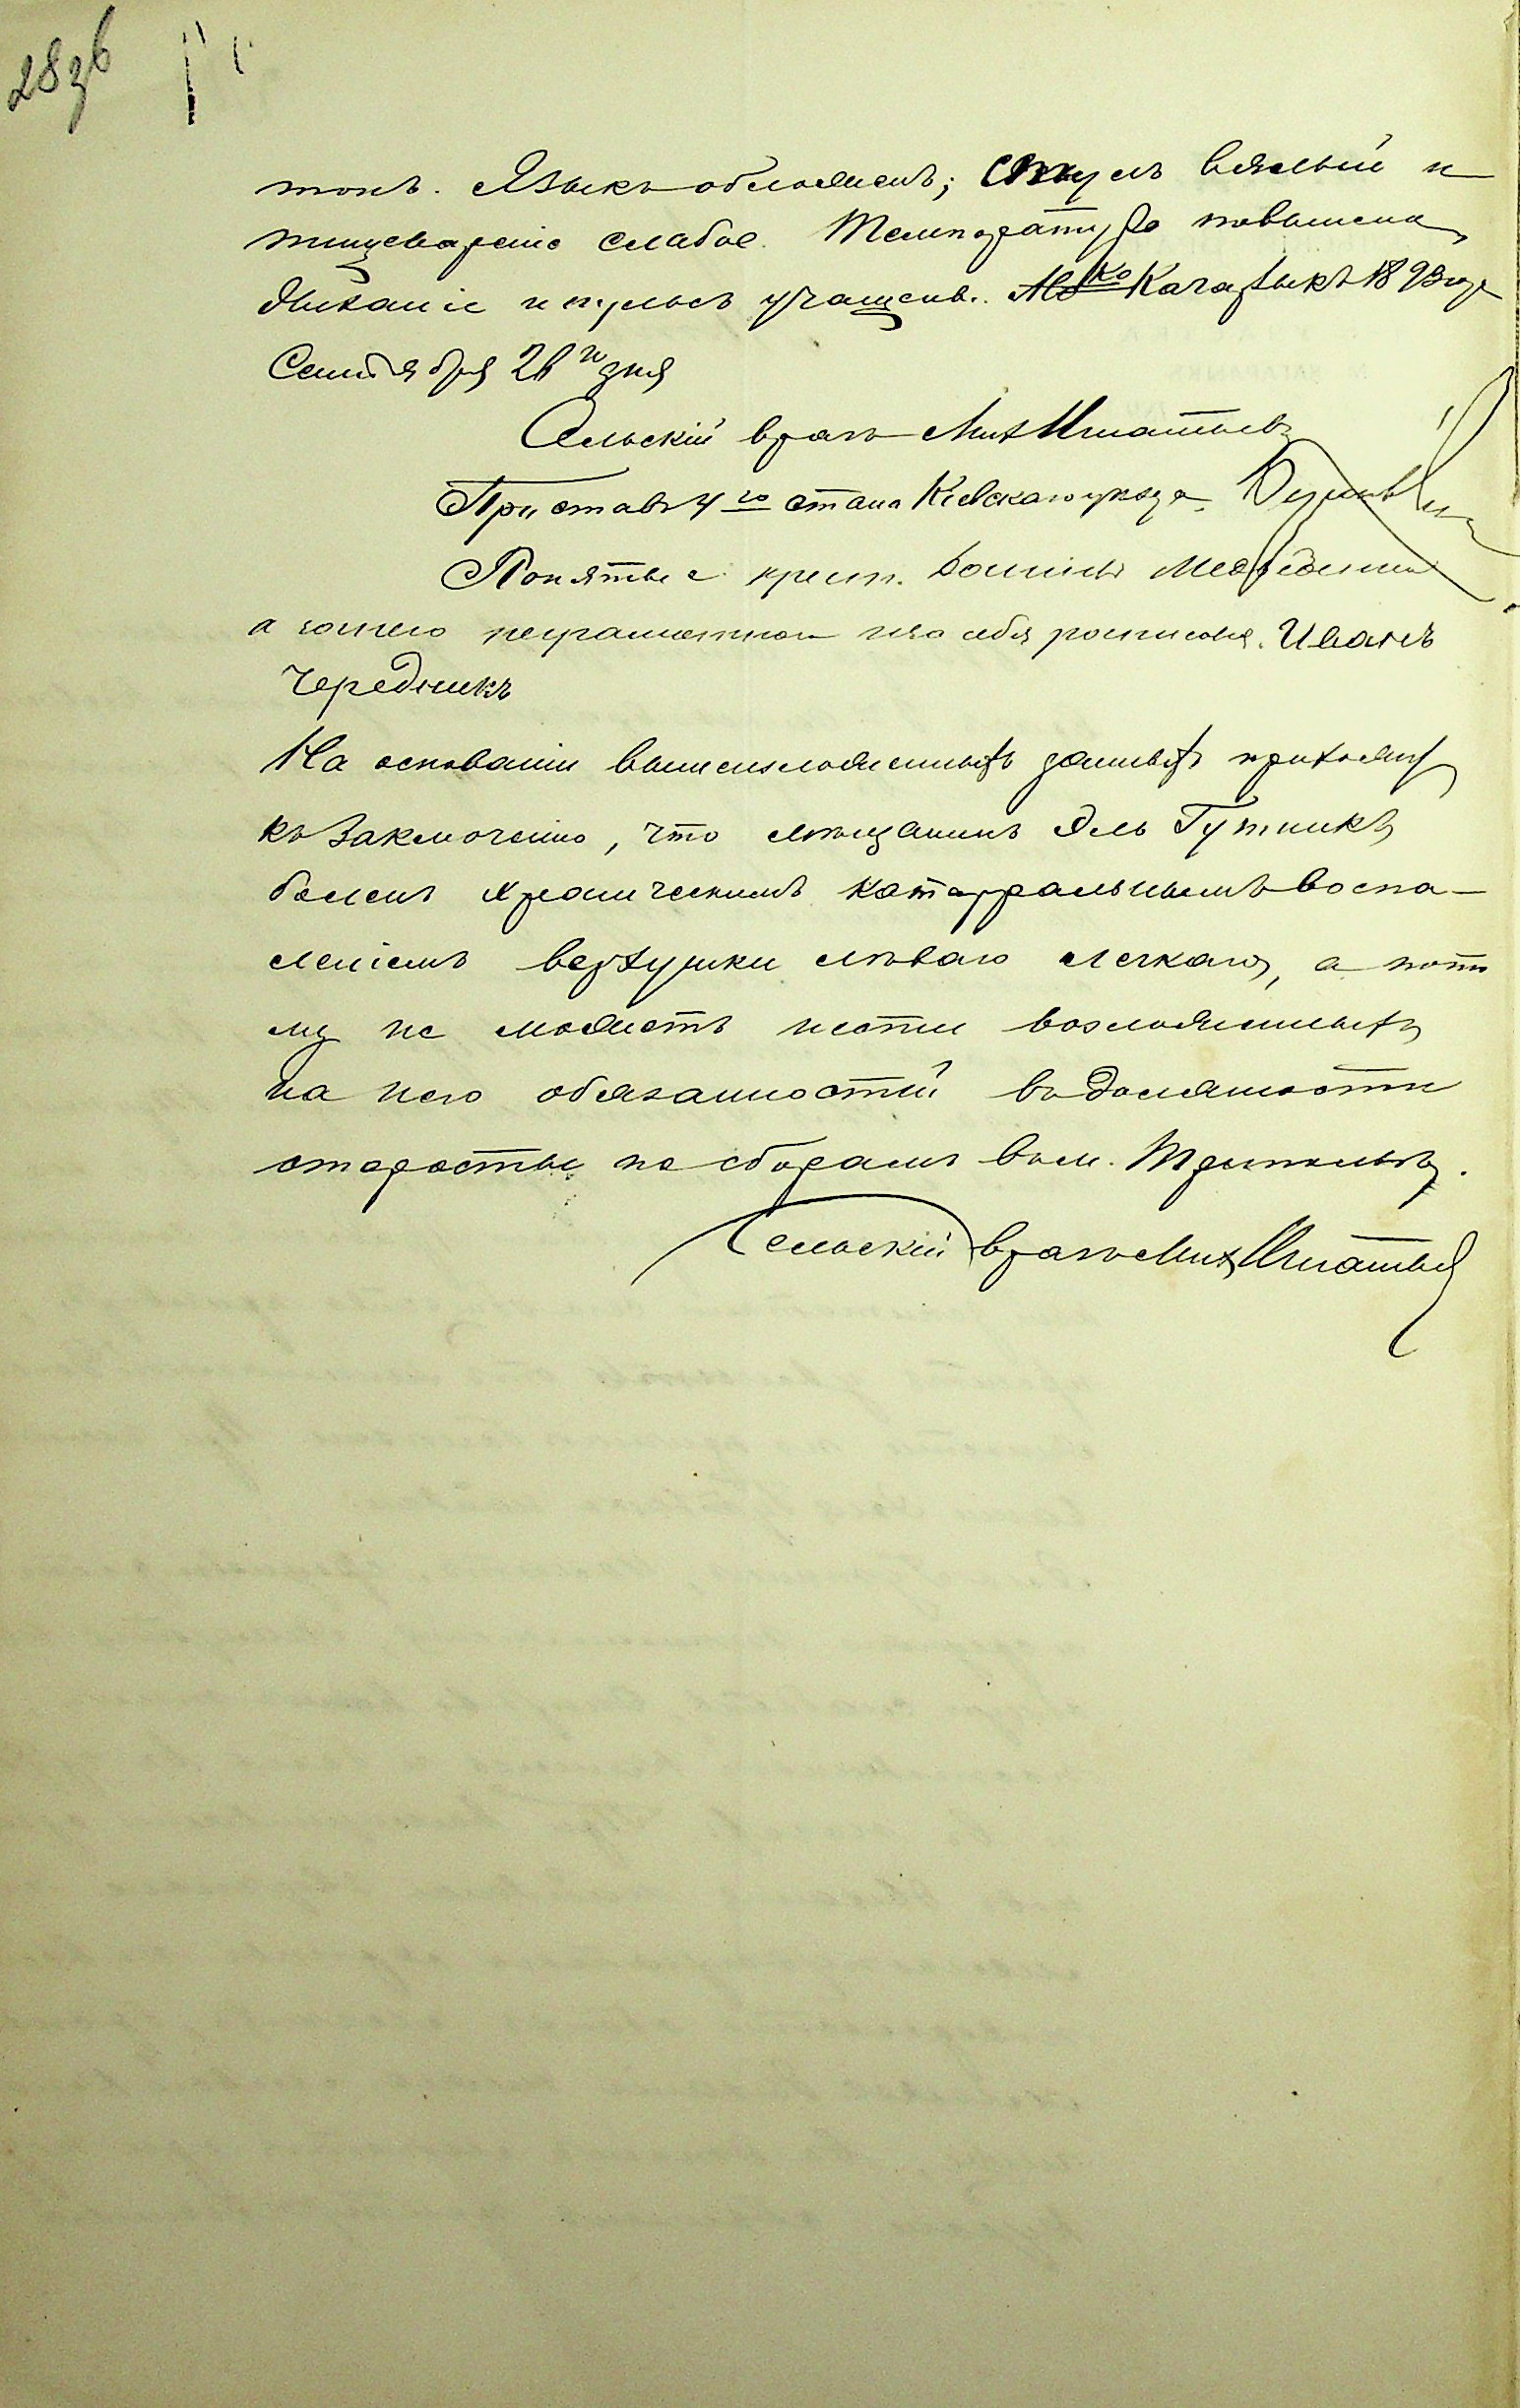 28зв
токъ. Языкъ обложенъ; стулъ вялый и
пищевареніе слабое. Температура повышена,
дыханіе и пульсъ учащены. М-ко Кагарлыкъ 1893 года
Сентября 26го дня
Сельскій врачъ Мих Игнатьевъ
Приставъ 4го стана Кіевскаго уѣзда
Понятые: крест. Медведенко
а за него неграмотнаго и за себя росписался Иванъ
Чередникъ
На основаніи вышеизложенныхъ данныхъ прихожу
къ заключенію, что мѣщанинъ Эль Гутникъ
боленъ хроническимъ катарральнымъ воспа-
леніемъ верхушки лѣваго легкаго, а пото
му не можетъ нести возложенныхъ
на него обязанностей въ должности
старосты по сборамъ въ м. Триполье.
Сельскій врачъ Мих Игнатьев